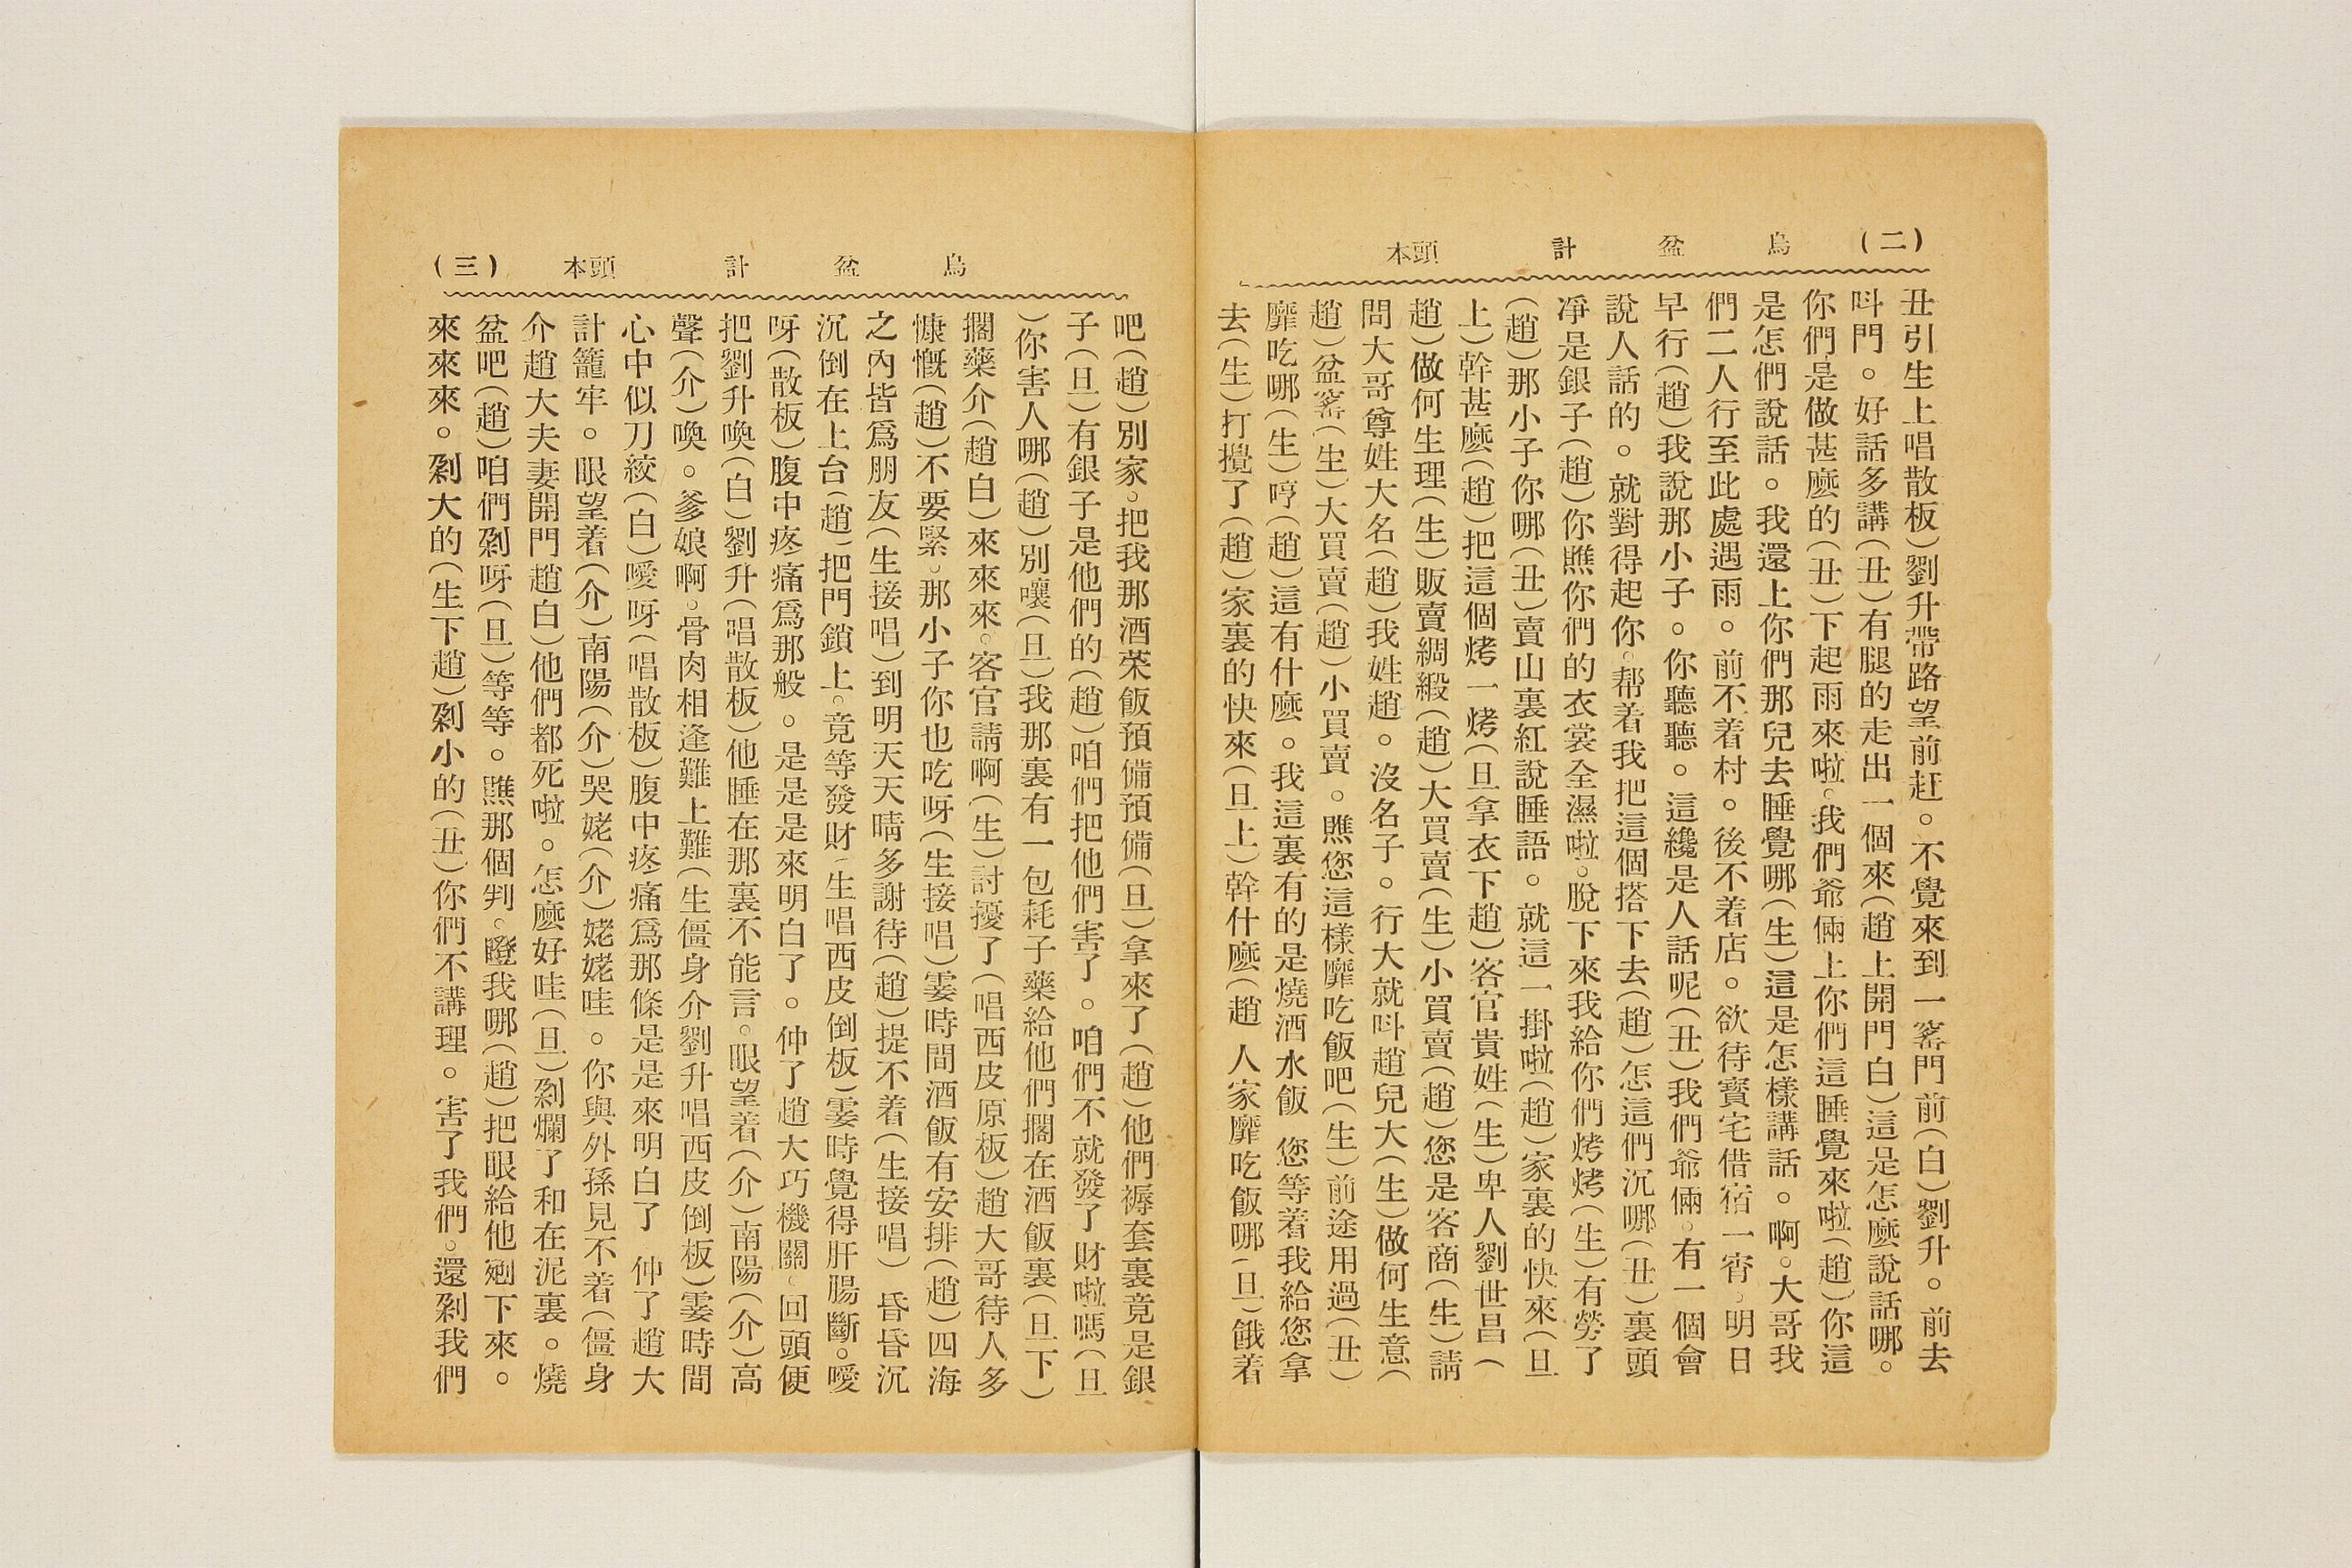 (二) 烏盆計 頭本
丑引生上唱散板)劉升帶路望前赶。不覺來到一窰門前(白)劉升。前去
呌門。好話多講(丑)有腿的走出一個來(趙上開門白)這是怎麽說話哪。
你們是做甚麽的(丑)下起雨來啦。我們爺倆上你們這睡覺來啦(趙)你這
是怎們說話。我還上你們那兒去睡覺哪(生)這是怎樣講話。啊。大哥我
們二人行至此處遇雨。前不着村。後不着店。欲待寶宅借宿一宵。明日
早行(趙)我說那小子。你聽聽。這纔是人話呢(丑)我們爺倆。有一個會
說人話的。就對得起你。帮着我把這個搭下去(趙)怎這們沉哪(丑)裏頭
凈是銀子(趙)你瞧你們的衣裳全濕啦。脫下來我給你們烤烤(生)有勞了
(趙)那小子你哪(丑)賣山裏紅說睡語。就這一掛啦(趙)家裏的快來(旦
上)幹甚麽(趙)把這個烤一烤(旦拿衣下趙)客官貴姓(生)卑人劉世昌(
趙)做何生理(生)販賣綢緞(趙)大買賣(生)小買賣(趙)您是客商(生)請
問大哥尊姓大名(趙)我姓趙。沒名子。行大就呌趙兒大(生)做何生意(
趙)盆窰(生)大買賣(趙)小買賣。瞧您這樣靡吃飯吧(生)前途用過(丑)
靡吃哪(生)哼(趙)這有什麽。我這裏有的是燒酒水飯 您等着我給您拿
去(生)打攪了(趙)家裏的快來(旦上)幹什麽(趙 人家靡吃飯哪(旦)餓着
烏盆計 頭本 (三)
吧(趙)別家。把我那酒菜飯預備預備(旦)拿來了(趙)他們褥套裏竟是銀
子(旦)有銀子是他們的(趙)咱們把他們害了。咱們不就發了財啦嗎(旦
)你害人哪(趙)別嚷(旦)我那裏有一包耗子藥給他們擱在酒飯裏(旦下)
擱藥介(趙白)來來來。客官請啊(生)討擾了(唱西皮原板)趙大哥待人多
慷慨(趙)不要緊。那小子你也吃呀(生接唱)霎時間酒飯有安排(趙)四海
之內皆爲朋友(生接唱)到明天天晴多謝待(趙)提不着(生接唱) 昏昏沉
沉倒在上台(趙)把門鎖上。竟等發財(生唱西皮倒板)霎時覺得肝腸斷。噯
呀(散板)腹中疼痛爲那般。是是是來明白了。仲了趙大巧機關。回頭便
把劉升喚(白)劉升(唱散板)他睡在那裏不能言。眼望着(介)南陽(介)高
聲(介)喚。爹娘啊。骨肉相逢難上難(生僵身介劉升唱西皮倒板)霎時間
心中似刀絞(白)噯呀(唱散板)腹中疼痛爲那條是是來明白了 仲了趙大
計籠牢。眼望着(介)南陽(介)哭姥(介)姥姥哇。你與外孫見不着(僵身
介趙大夫妻開門趙白)他們都死啦。怎麽好哇(旦)剁爛了和在泥裏。燒
盆吧(趙)咱們剁呀(旦)等等。瞧那個判。瞪我哪(趙)把眼給他剜下來。
來來來。剁大的(生下趙)剁小的(丑)你們不講理。害了我們。還剁我們